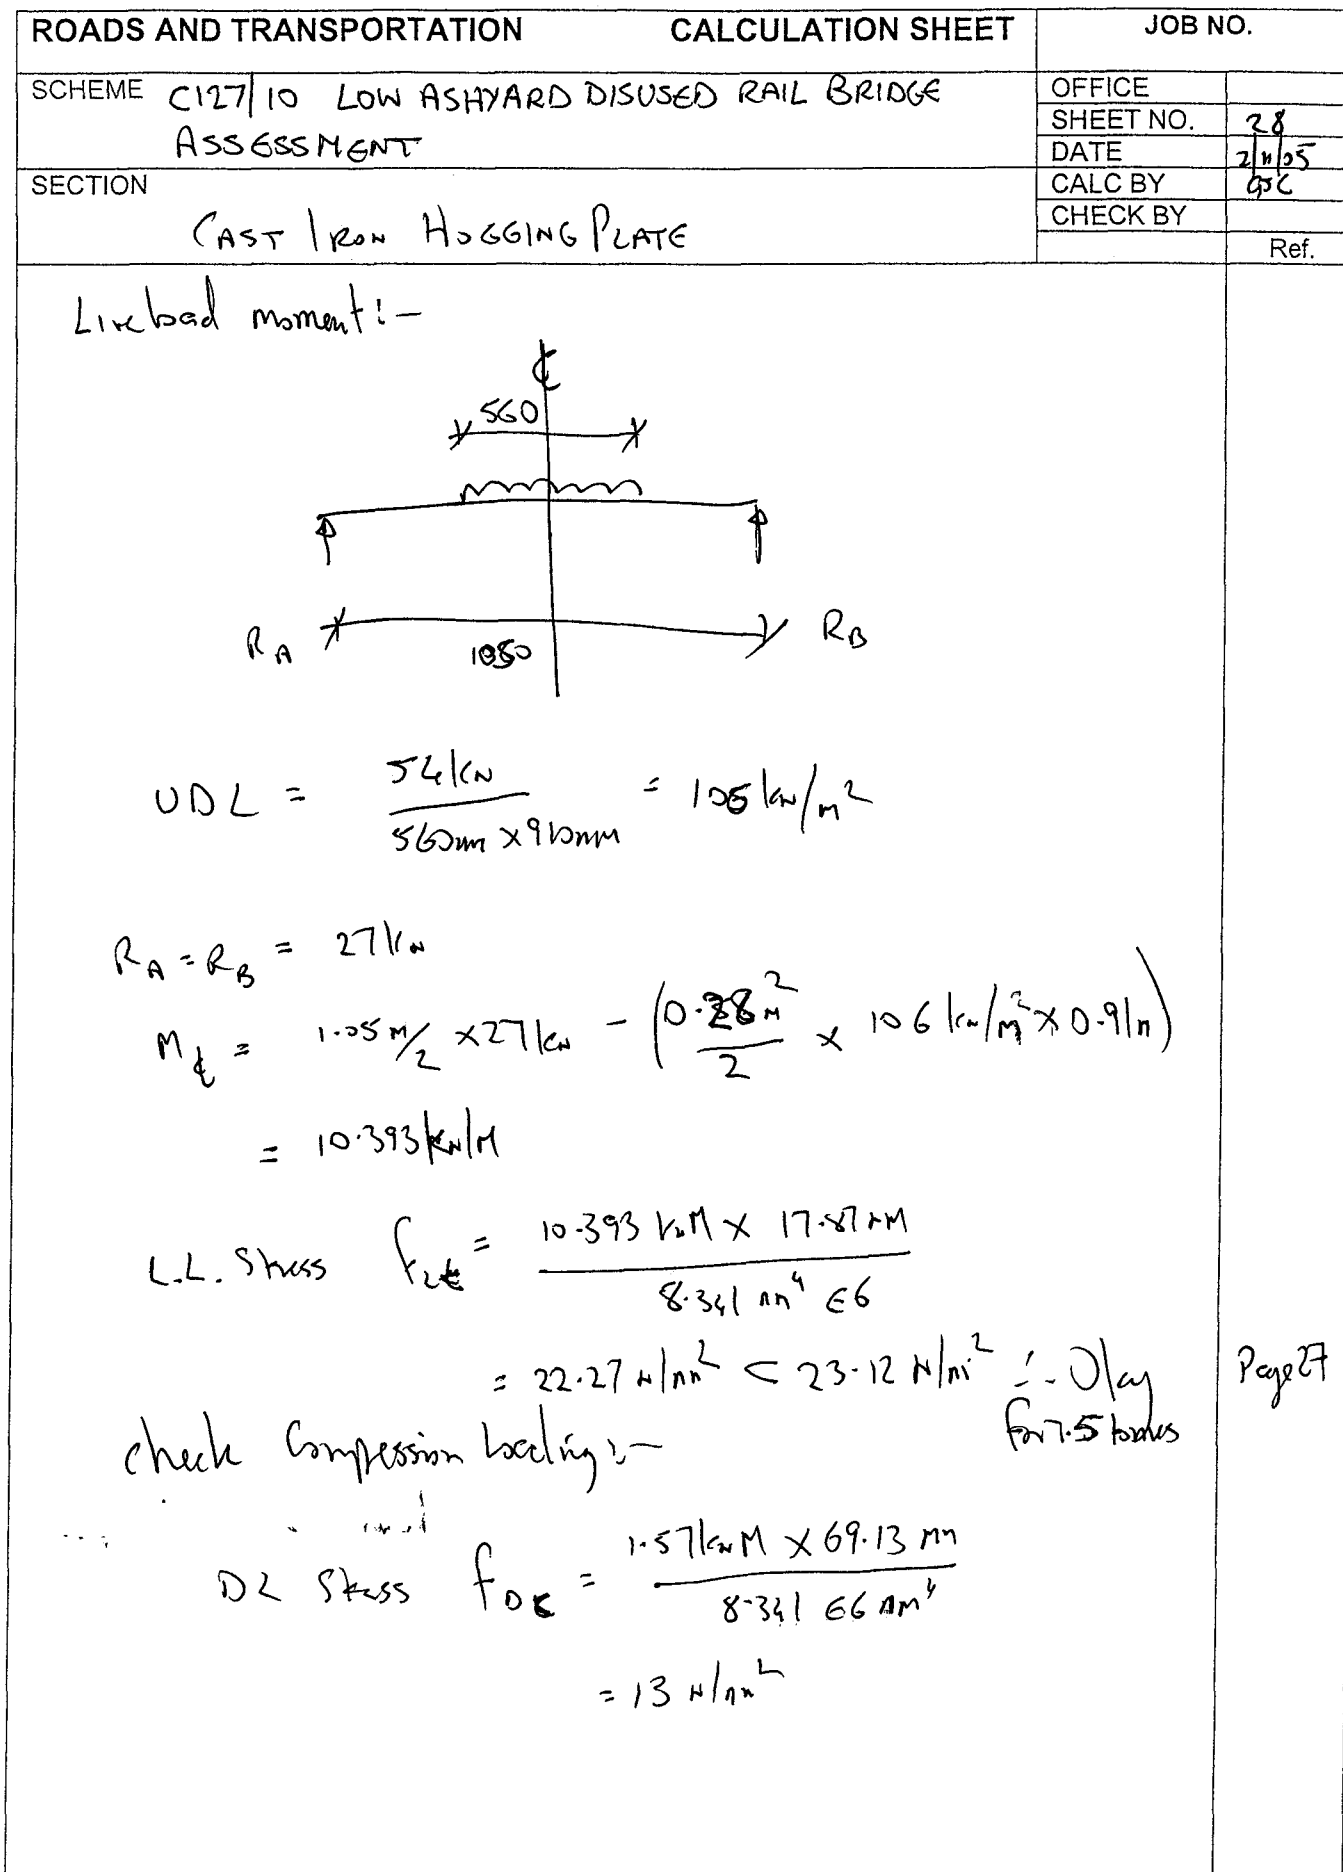 ROADS AND TRANSPORTATION CALCULATION SHEET JOB NO.
SCHEME C127/10 LOW ASHYARD DISUSED RAIL BRIDGE
ASSESSMENT
OFFICE
SHEET NO. 28
DATE 2/11/05
SECTION
CALC BY GJC
CHECK BY
CAST IRON HOGGING PLATE
Ref.
Live load moment:-
℄
560
R_A 1050 R_B
UDL = 54kN / 560mm x 910mm = 106 kN/m²
R_A = R_B = 27kN
M_℄ = 1.05m/2 x 27kN - (0.28m²/2 x 106 kN/m² x 0.91m)
= 10.393 kN/M
L.L. Stress f_L = 10.393 kNM x 17.87mM / 8.341 mm⁴ E6
= 22.27 N/mm² < 23.12 N/m² ∴ Okay Page 27
for 7.5 tonnes
check Compression loading:-
DL Stress f_D = 1.57kNM x 69.13 mm / 8.341 E6 mm⁴
= 13 N/mm²